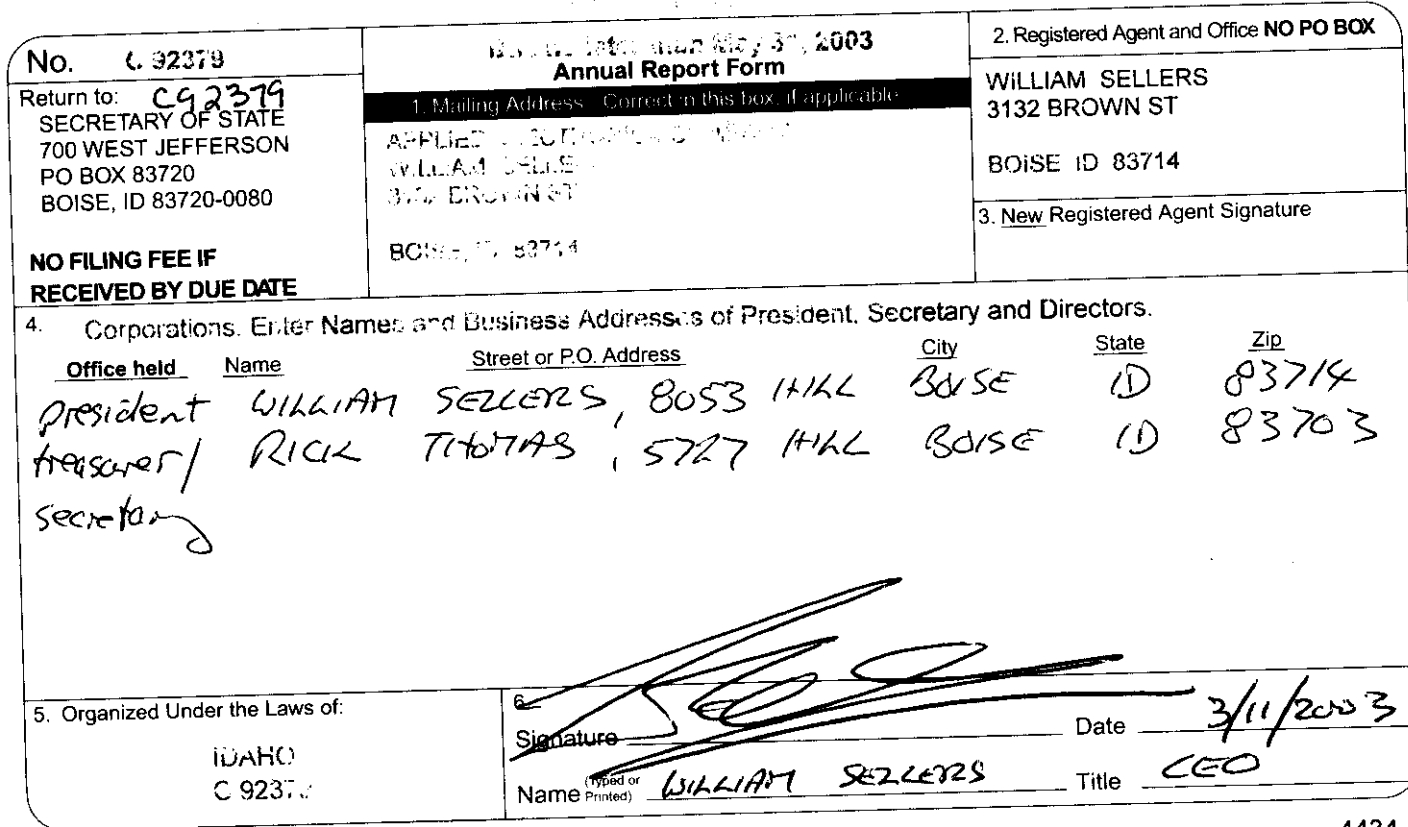 No. C 92379
Return to: C92379
SECRETARY OF STATE
700 WEST JEFFERSON
PO BOX 83720
BOISE, ID 83720-0080
NO FILING FEE IF
RECEIVED BY DUE DATE
2003
Annual Report Form
1. Mailing Address Correct in this box, if applicable
APPLIED
WILLIAM
BROWN ST
BOISE, ID 83714
2. Registered Agent and Office NO PO BOX
WILLIAM SELLERS
3132 BROWN ST
BOISE ID 83714
3. New Registered Agent Signature
4. Corporations. Enter Names and Business Addresses of President, Secretary and Directors.
Office held Name Street or P.O. Address City State Zip
president WILLIAM SELLERS, 8053 HILL BOISE ID 83714
treasurer/ RICK THOMAS, 5727 HILL BOISE ID 83703
secretary
5. Organized Under the Laws of:
IDAHO
C 9237
6.
Signature Date 3/11/2003
Name (Typed or Printed) WILLIAM SELLERS Title CEO